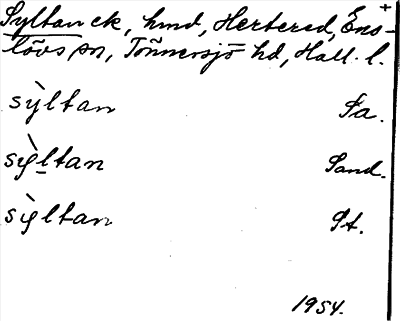 Syltan ek, hmd, Hertered, Ens-
lövs sn, Tönnersjö hd, Hall. l.
sỳltan Fa.
sỳltan Sand.
sỳltan St.
1954.